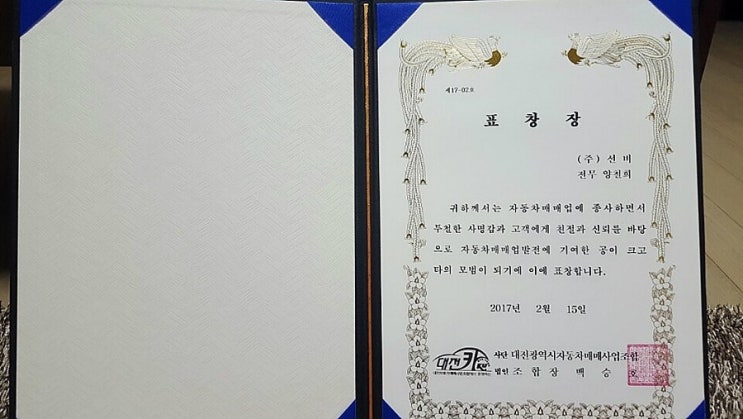 제17-02호
표 창 장
(주) 선비
전무 양천희
귀하께서는 자동차매매업에 종사하면서
투철한 사명감과 고객에게 친절과 신뢰를 바탕
으로 자동차매매업발전에 기여한 공이 크고
타의 모범이 되기에 이에 표창합니다.
2017년 2월 15일
대전카
사단 대전광역시자동차매매사업조합
법인 조 합 장 백 승 호